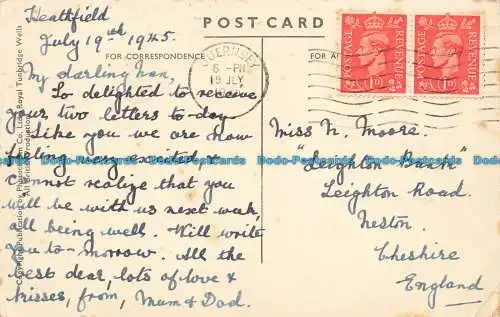 Heathfield
July 19th 1945.
POST CARD
FOR CORRESPONDENCE
FOR A
GUERNSEY
6 - PM
19 JLY
POSTAGE
REVENUE
1D
POSTAGE
REVENUE
1D
My darling Nan,
So delighted to receive
your two letters to-day
Like you we are now
feeling very excited, &
cannot realize that you
will be with us next week,
all being well. Will write
you to-morrow. All the
best dear, lots of love &
kisses, from, Mum & Dad.
Miss N. Moore.
"Leighton Bank"
Leighton Road.
Neston.
Cheshire
England
Royal Tunbridge Wells
All British Production
Dodo-Postcards Dodo-Postcards Dodo-Postcards Dodo-Postcards